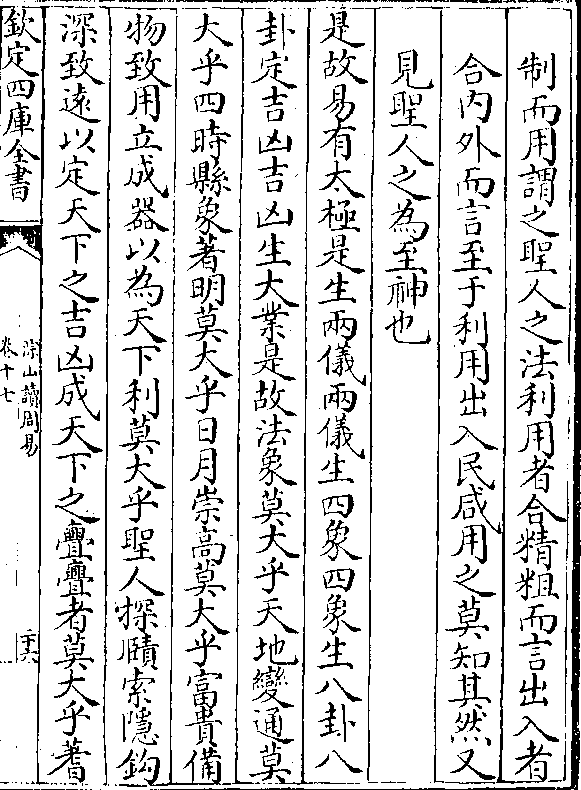 制而用謂之聖人之法利用者合精粗而言出入者
合内外而言至于利用出入民咸用之莫知其然又
見聖人之為至神也
是故易有太極是生兩儀兩儀生四象四象生八卦八
卦定吉凶吉凶生大業是故法象莫大乎天地變通莫
大乎四時縣象著明莫大乎日月崇高莫大乎富貴備
物致用立成器以為天下利莫大乎聖人探賾索隱鈎
深致遠以定天下之吉凶成天下之亹亹者莫大乎蓍
欽定四庫全書
深山讀周易
卷十七
二十六